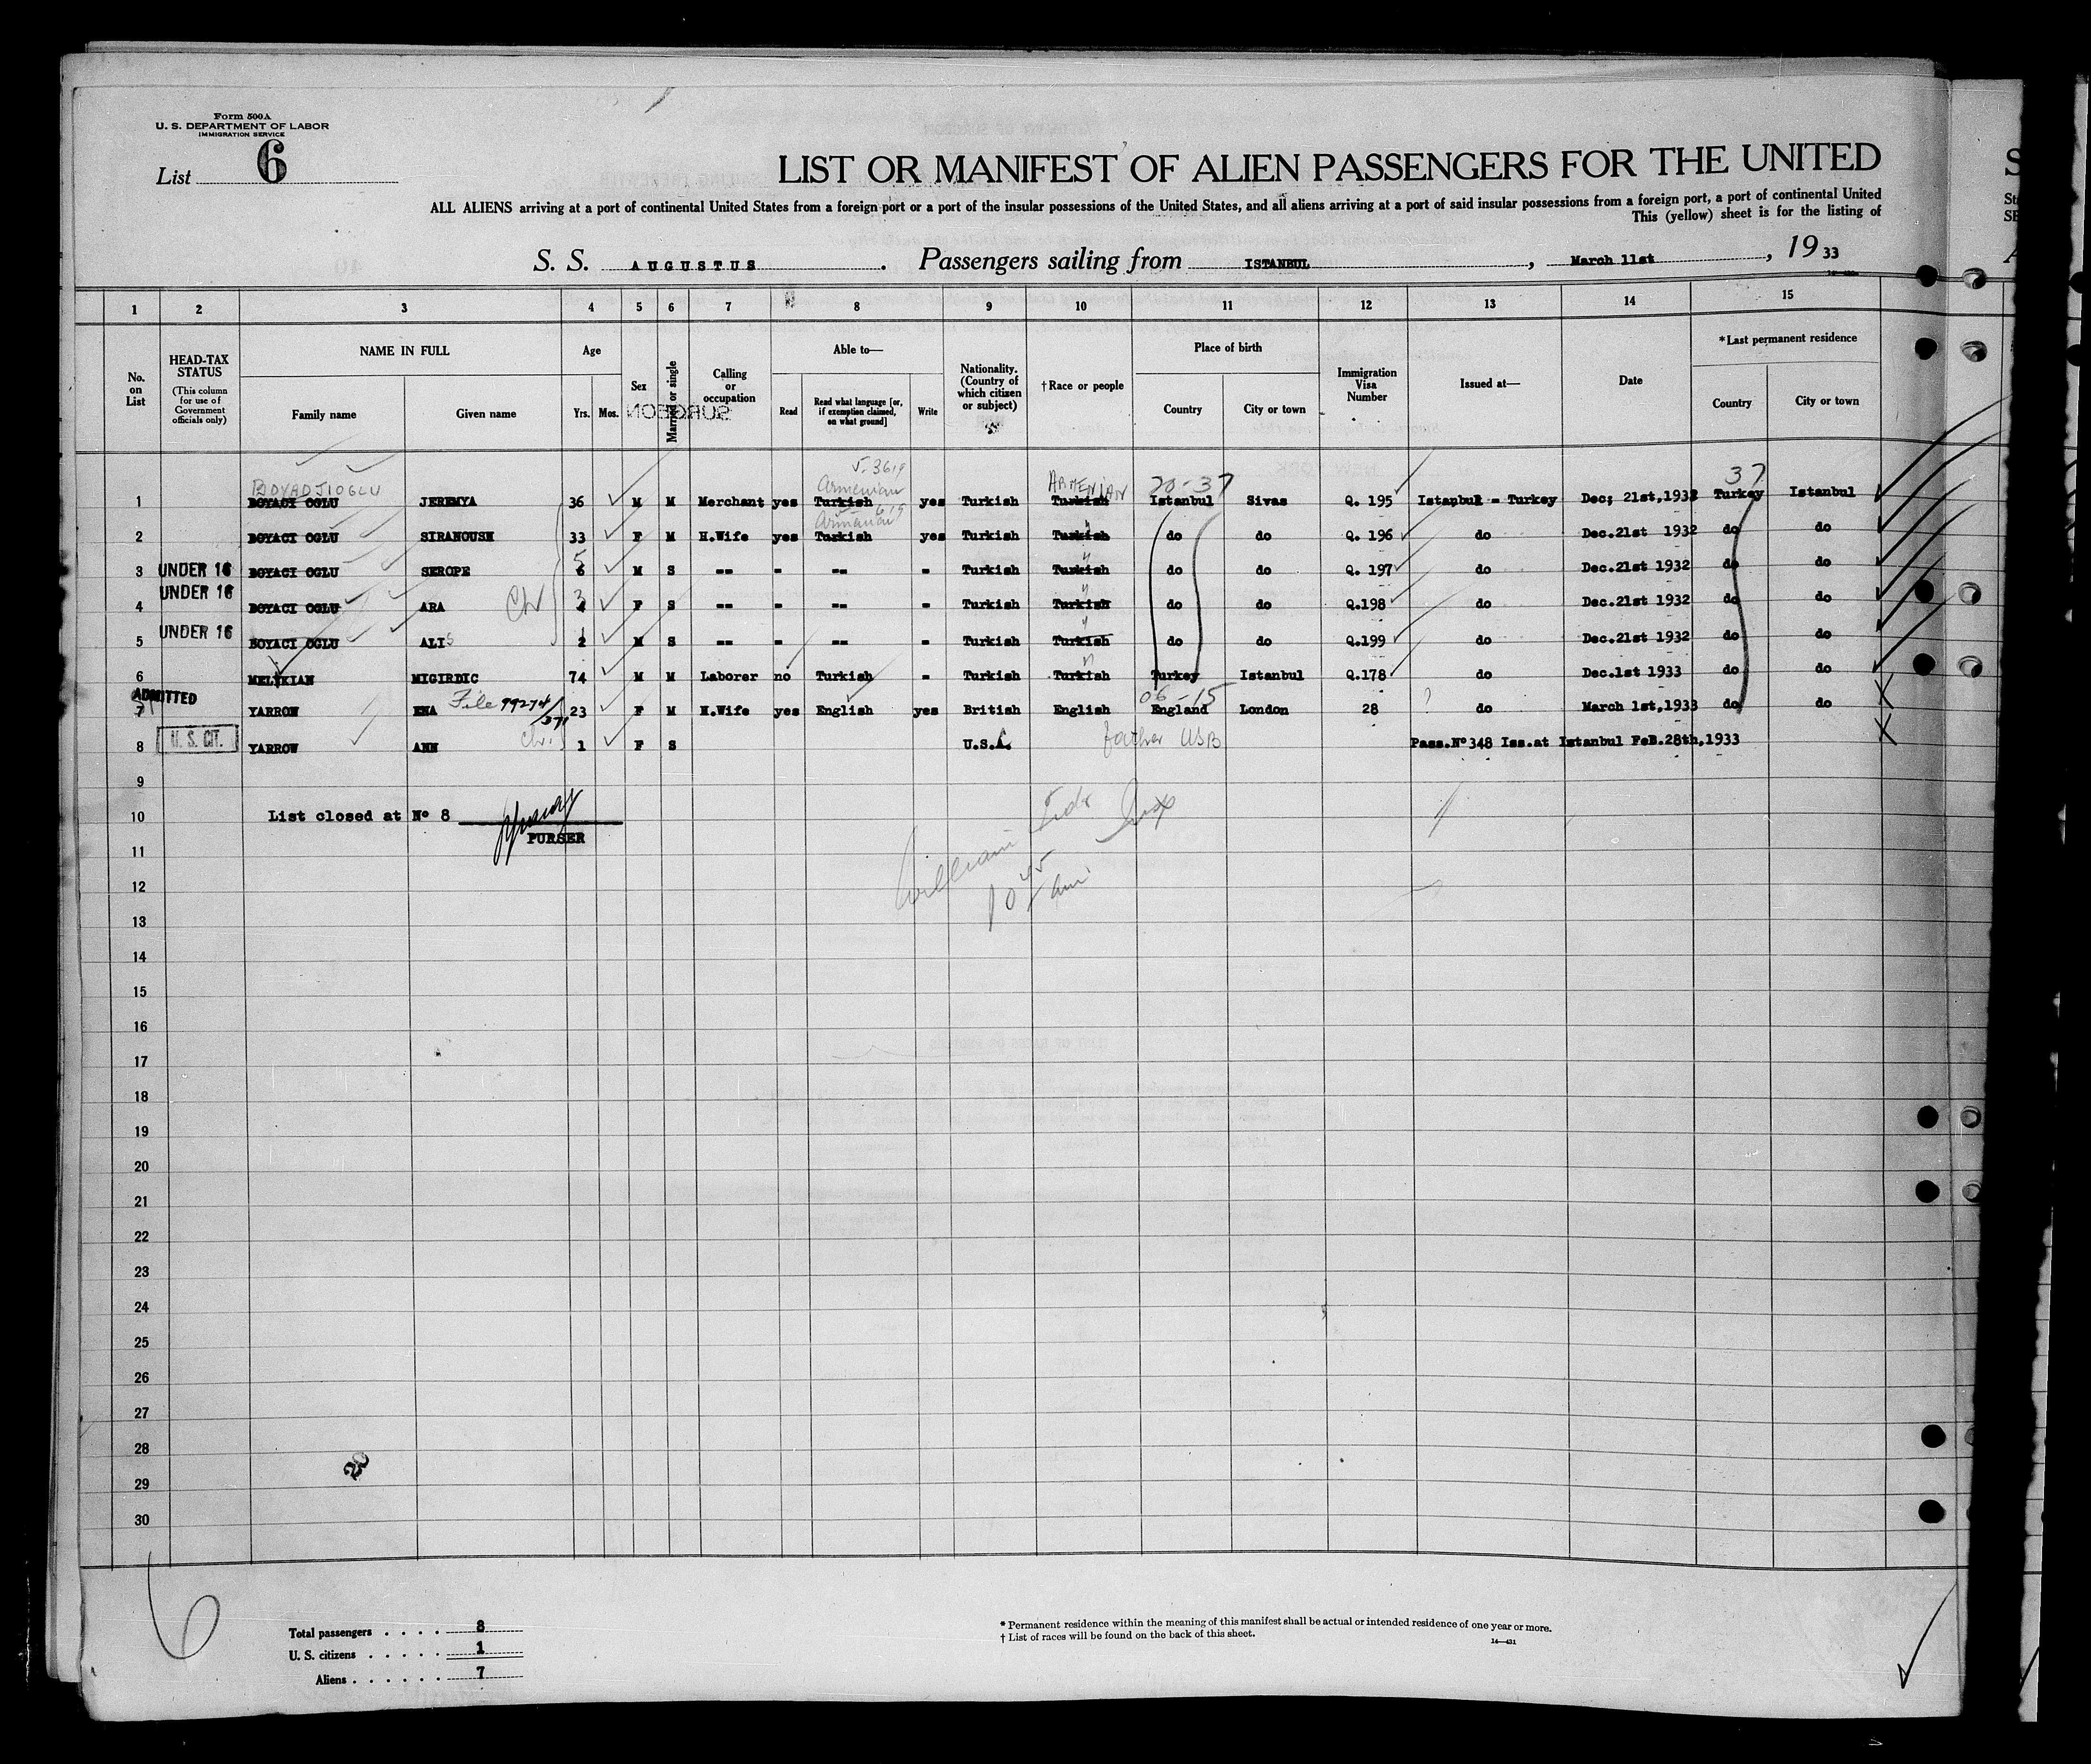 Form 500A
U. S. DEPARTMENT OF LABOR
IMMIGRATION SERVICE
List 6
LIST OR MANIFEST OF ALIEN PASSENGERS FOR THE UNITED
ALL ALIENS arriving at a port of continental United States from a foreign port or a port of the insular possessions of the United States, and all aliens arriving at a port of said insular possessions from a foreign port, a port of continental United
This (yellow) sheet is for the listing of
S. S. AUGUSTUS. Passengers sailing from ISTANBUL, March 11st, 1933
1 2 3 4 5 6 7 8 9 10 11 12 13 14 15
No. on List
HEAD-TAX STATUS (This column for use of Government officials only)
NAME IN FULL Family name Given name
Age Yrs. Mos.
Sex
Married or single
Calling or occupation
Able to— Read Read what language [or, if exemption claimed, on what ground] Write
Nationality. (Country of which citizen or subject)
† Race or people
Place of birth Country City or town
Immigration Visa Number
Issued at—
Date
* Last permanent residence Country City or town
SURGEON
BOYADJIOGLU Armenian ARMENIAN 70-37 37
1 BOYACI OGLU JEREMYA 36 M M Merchant yes Turkish yes Turkish Turkish Istanbul Sivas Q. 195 Istanbul - Turkey Dec; 21st,1932 Turkey Istanbul
Armenian
2 BOYACI OGLU SIRANOUSH 33 F M H.Wife yes Turkish yes Turkish Turkish do do Q. 196 do Dec.21st 1932 do do
3 UNDER 16 BOYACI OGLU SEROPE 6 5 M S -- - -- - Turkish Turkish do do Q. 197 do Dec.21st 1932 do do
4 UNDER 16 BOYACI OGLU ARA Ch 4 3 F S -- - -- - Turkish Turkish do do Q.198 do Dec.21st 1932 do do
5 UNDER 16 BOYACI OGLU ALIS 2 1 M S -- - -- - Turkish Turkish do do Q.199 do Dec.21st 1932 do do
6 MELIKIAN MIGIRDIC 74 M M Laborer no Turkish - Turkish Turkish Turkey Istanbul Q.178 do Dec.1st 1933 do do
ADMITTED File 99274/371 06-15
7 YARROW ENA 23 F M H.Wife yes English yes British English England London 28 ? do March 1st,1933 do do
8 U. S. CIT. YARROW ANN Ch. 1 F S U.S.A. father USB Pass.Nº348 Iss.at Istanbul FeB.28th,1933
9
10 List closed at Nº 8
PURSER
11
12
William
10 45 am
13
14
15
16
17
18
19
20
21
22
23
24
25
26
27
28
29
20
30
6
Total passengers . . . . 8
U. S. citizens . . . . . 1
Aliens . . . . . . 7
* Permanent residence within the meaning of this manifest shall be actual or intended residence of one year or more.
† List of races will be found on the back of this sheet.
14—431